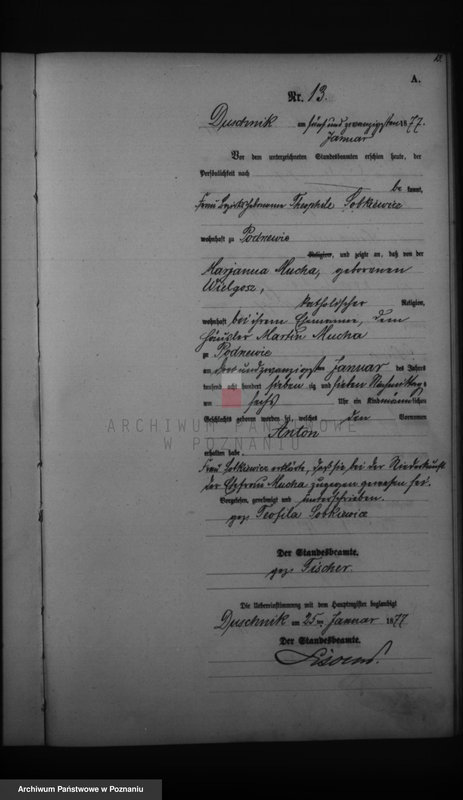 A.
Nr. 13.
Duschnik am fünf und zwanzigsten 1877.
Januar
Vor dem unterzeichneten Standesbeamten erschien heute, der
Persönlichkeit nach
be kannt,
Frau Bezirkshebamme Theophile Sobkiewicz
wohnhaft zu Podrewie
Religion, und zeigte an, daß von der
Marjanna Mucha, geborenen
Wielgosz,
katholischer Religion,
wohnhaft bei ihrem Ehemanne, dem
Häusler Martin Mucha
zu Podrewie
am drei und zwanzigsten Januar des Jahres
tausend acht hundert sieben zig und sieben Nachmittags
um sechs Uhr ein Kind männlichen
Geschlechts geboren worden sei, welches den Vornamen
Anton
erhalten habe.
Frau Sobkiewicz erklärte, daß sie bei der Niederkunft
der Ehefrau Mucha zugegen gewesen sei.
Vorgelesen, genehmigt und unterschrieben.
gez. Teofila Sobkiewicz
Der Standesbeamte.
gez. Fischer.
Die Uebereinstimmung mit dem Hauptregister beglaubigt
Duschnik am 25ten Januar 1877
Der Standesbeamte.
ARCHIWUM PAŃSTWOWE
W POZNANIU
Archiwum Państwowe w Poznaniu